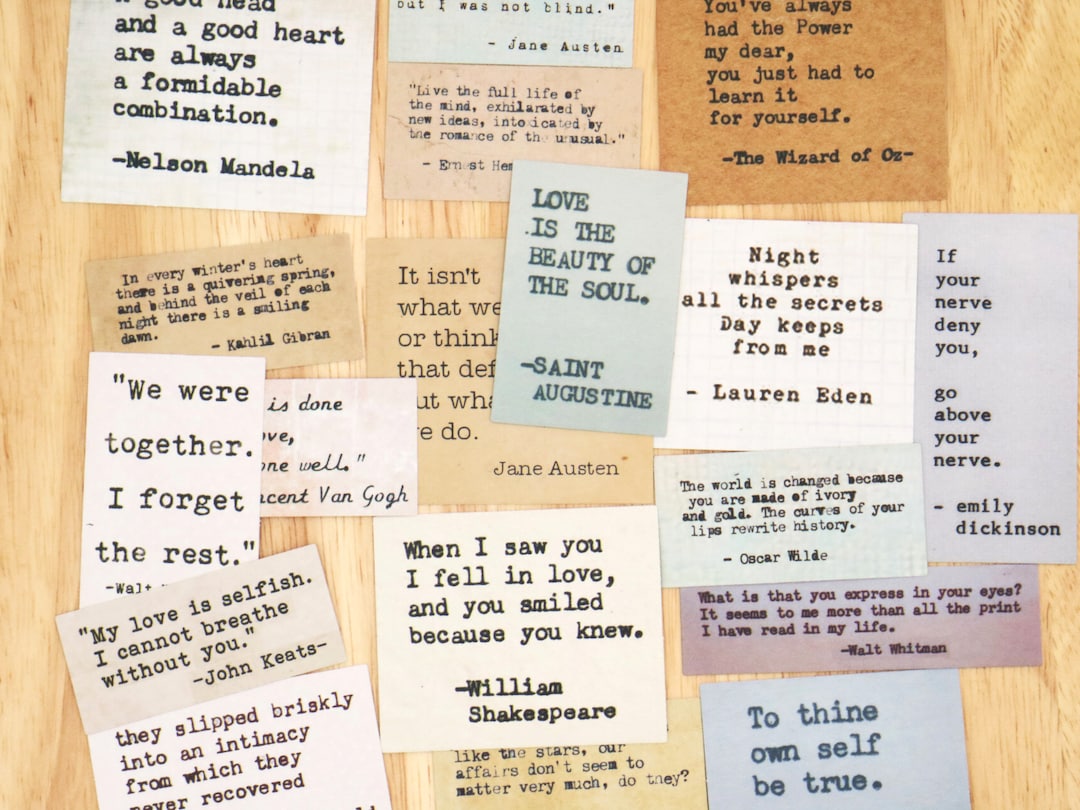 a good head
and a good heart
are always
a formidable
combination.
-Nelson Mandela
but I was not blind."
- Jane Austen
"Live the full life of
the mind, exhilarated by
new ideas, intoxicated by
the romance of the unusual."
- Ernest Hem
You've always
had the Power
my dear,
you just had to
learn it
for yourself.
-The Wizard of Oz-
In every winter's heart
there is a quivering spring,
and behind the veil of each
night there is a smiling
dawn.
- Kahlil Gibran
It isn't
what we
or think
that def
ut wha
e do.
Jane Austen
LOVE
IS THE
BEAUTY OF
THE SOUL.
-SAINT
AUGUSTINE
Night
whispers
all the secrets
Day keeps
from me
- Lauren Eden
If
your
nerve
deny
you,
go
above
your
nerve.
- emily
dickinson
"We were
together.
I forget
the rest."
-Walt
is done
ve,
ne well."
ncent Van Gogh
The world is changed because
you are made of ivory
and gold. The curves of your
lips rewrite history.
- Oscar Wilde
When I saw you
I fell in love,
and you smiled
because you knew.
-William
Shakespeare
What is that you express in your eyes?
It seems to me more than all the print
I have read in my life.
-Walt Whitman
"My love is selfish.
I cannot breathe
without you."
-John Keats-
they slipped briskly
into an intimacy
from which they
never recovered
like the stars, our
affairs don't seem to
matter very much, do they?
To thine
own self
be true.